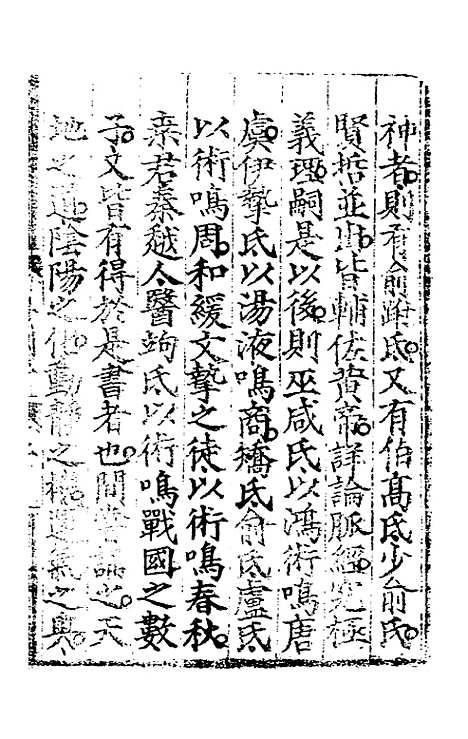 神者則有俞跗氏又有伯高氏少俞氏
賢哲並出皆輔佐黃帝詳論脈經究極
義理嗣是以後則巫咸氏以鴻術鳴唐
虞伊摯氏以湯液鳴商矯氏俞氏盧氏
以術鳴周和緩文摯之徒以術鳴春秋
桒君秦越人醫竘氏以術鳴戰國之數
子文皆有得於是書者也間嘗論之天
地之道陰陽之化動靜之機運氣之奧